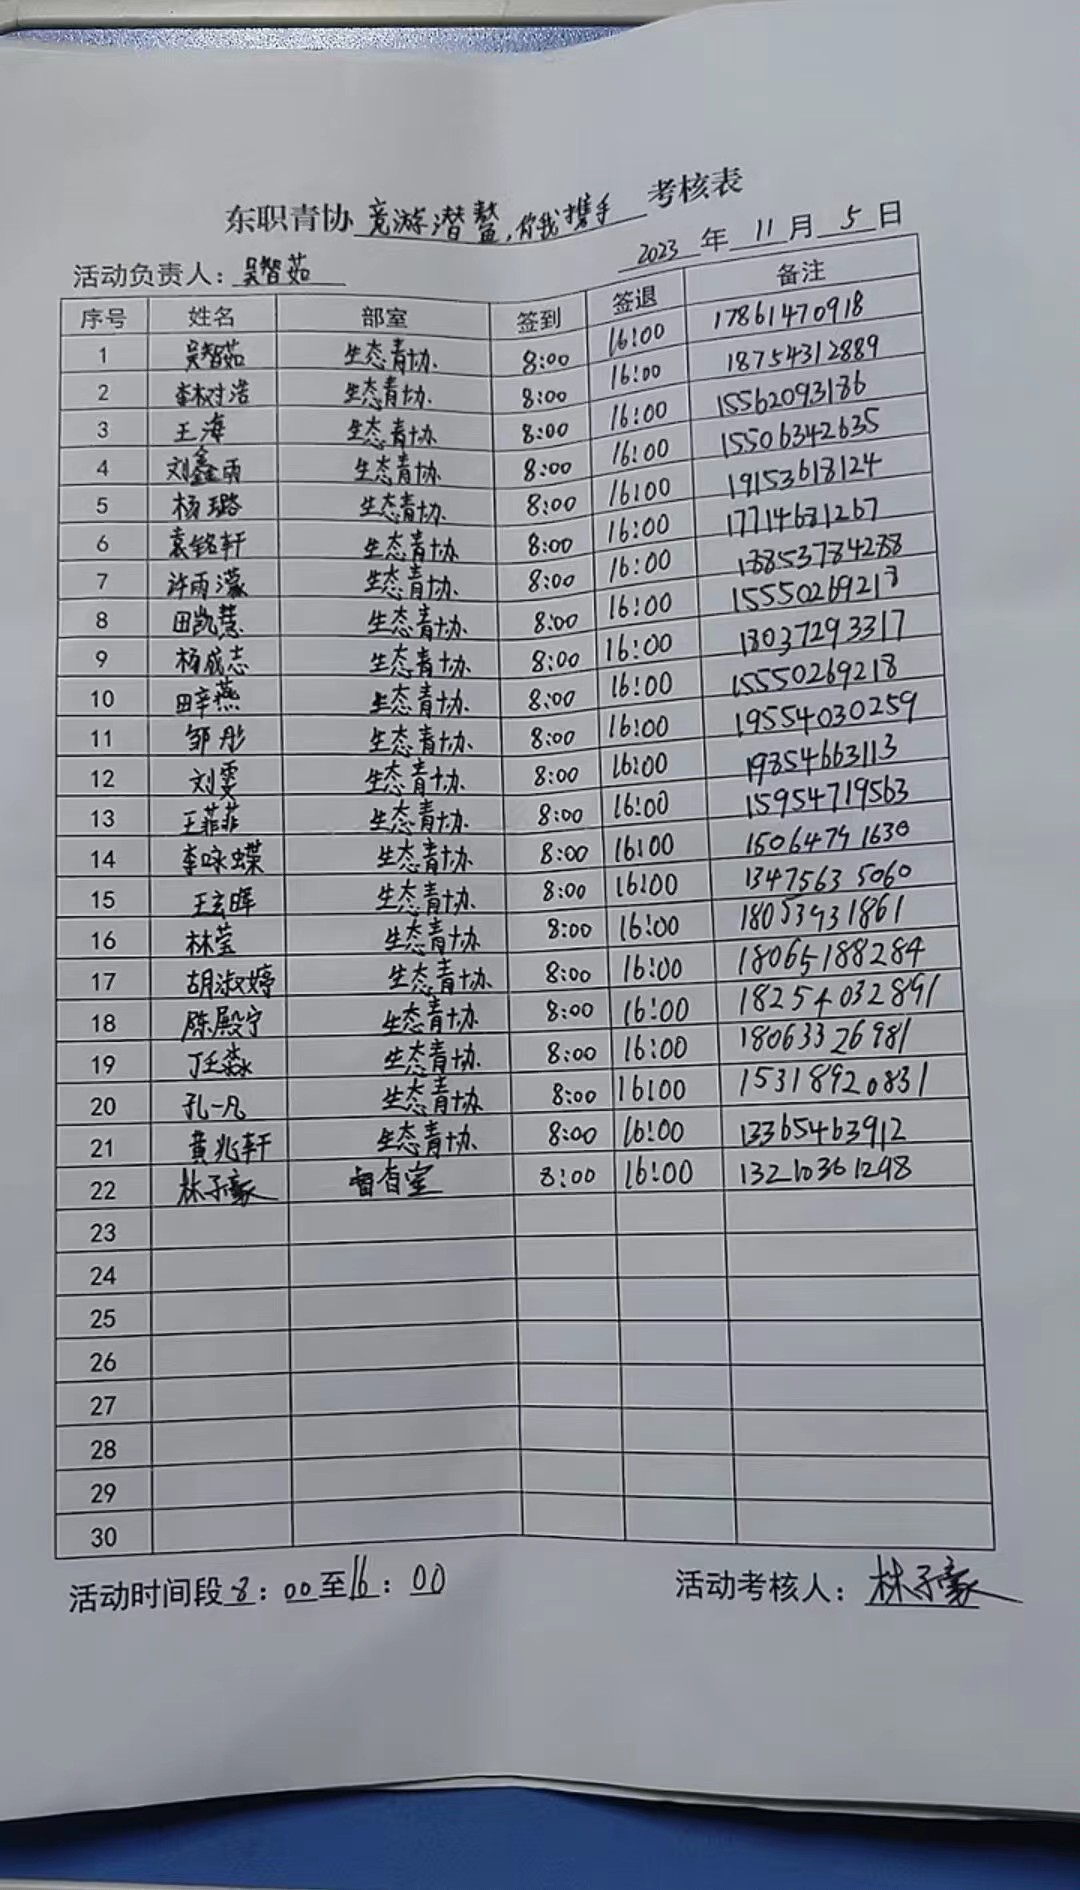 东职青协竞游潜鳌,你我携手考核表
活动负责人：吴智茹 2023年11月5日
序号 姓名 部室 签到 签退 备注
1 吴智茹 生态青协 8:00 16:00 17861470918
2 李树浩 生态青协 8:00 16:00 18754312889
3 王海 生态青协 8:00 16:00 15562093186
4 刘鑫雨 生态青协 8:00 16:00 15506342635
5 杨璐 生态青协 8:00 16:00 19153618124
6 袁铭轩 生态青协 8:00 16:00 17714681267
7 许雨濛 生态青协 8:00 16:00 18853784288
8 田凯慧 生态青协 8:00 16:00 15550269218
9 杨成志 生态青协 8:00 16:00 18037293317
10 田辛燕 生态青协 8:00 16:00 15550269218
11 邹彤 生态青协 8:00 16:00 19554030259
12 刘雯 生态青协 8:00 16:00 19854663113
13 王菲菲 生态青协 8:00 16:00 15954719563
14 李咏蝶 生态青协 8:00 16:00 15064791630
15 王玄晖 生态青协 8:00 16:00 13475635060
16 林莹 生态青协 8:00 16:00 18053931861
17 胡淑婷 生态青协 8:00 16:00 18065188284
18 陈殿宁 生态青协 8:00 16:00 18254032891
19 丁王淼 生态青协 8:00 16:00 18063326981
20 孔一凡 生态青协 8:00 16:00 15318920831
21 黄兆轩 生态青协 8:00 16:00 13365463912
22 林子豪 8:00 16:00 13210361298
23
24
25
26
27
28
29
30
活动时间段8：00至16：00 活动考核人：林子豪